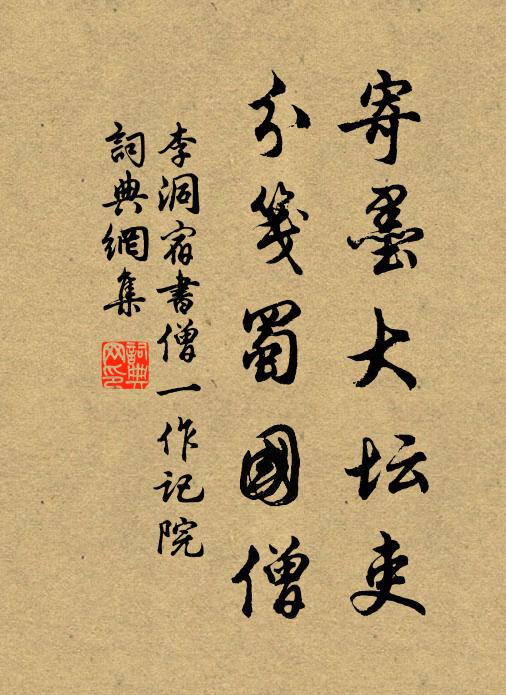 寄墨大坛吏
分笺蜀國僧
李洞宿書僧一作記院
詞典網集
詞典網印